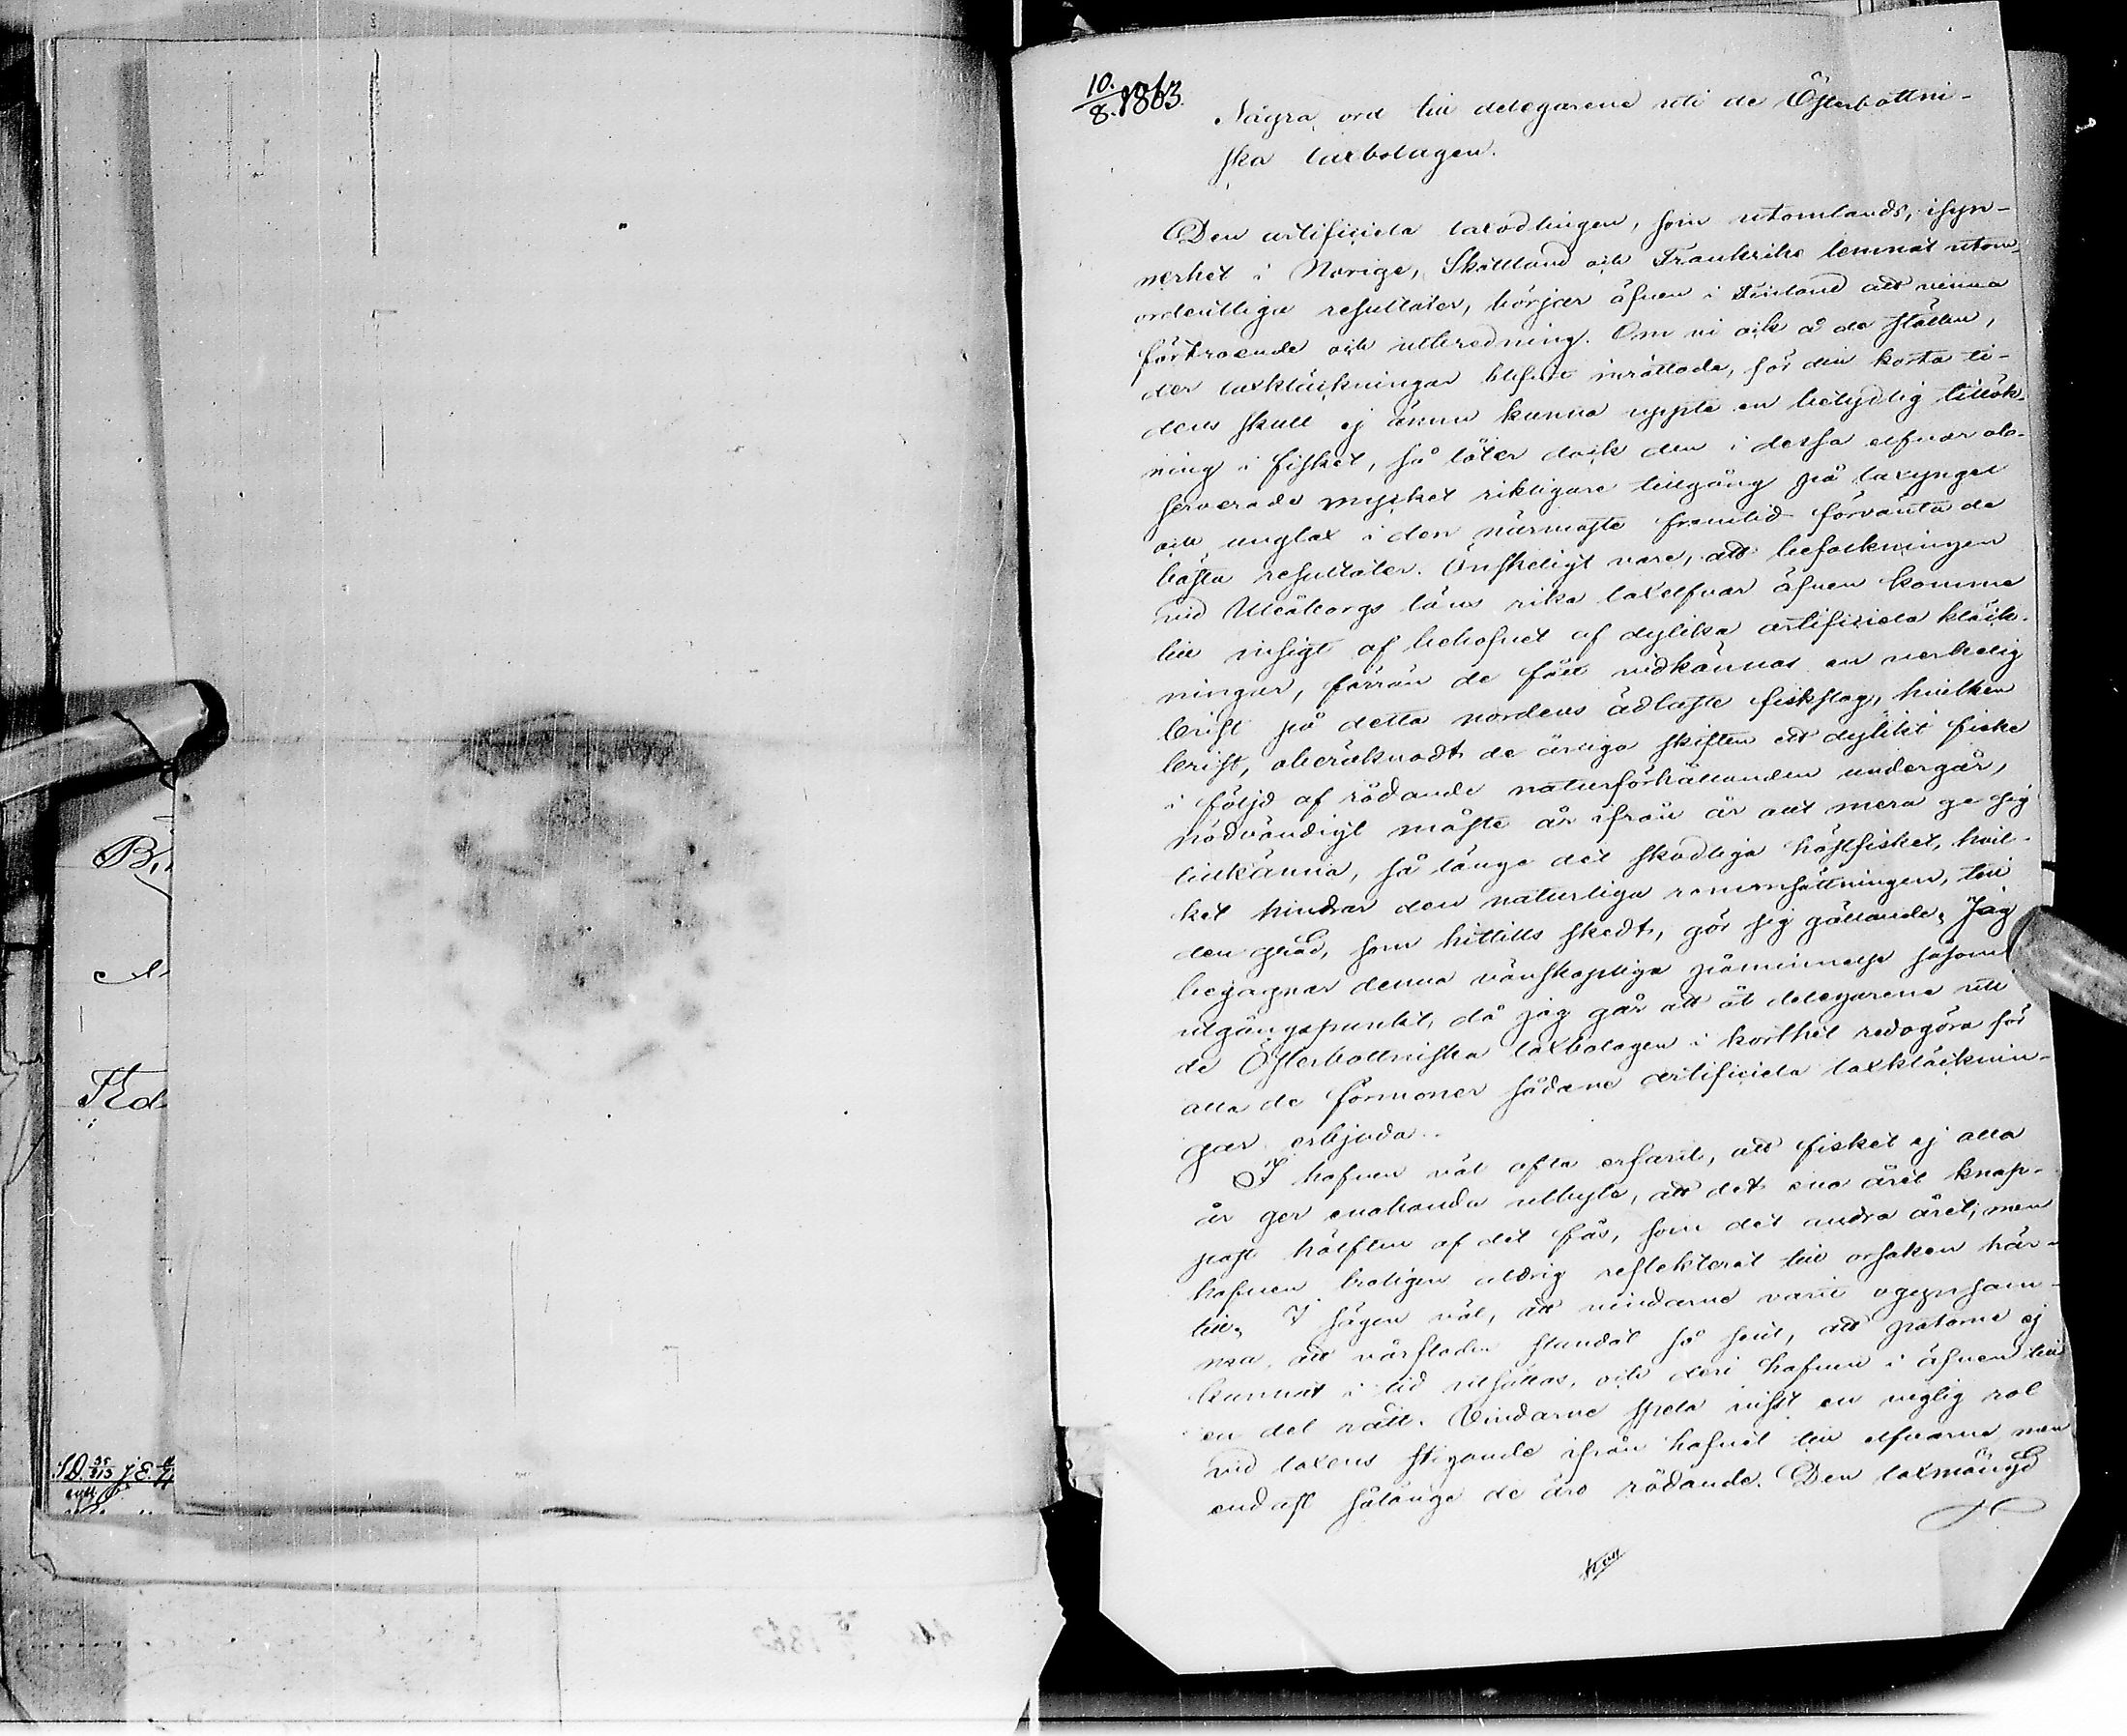 10./8. 1863.
Några ord till delegarene uti de Österbottni-
ska laxbolagen.
Den artificiela laxodlingen, som utomlands, isyn-
nerhet i Norige, Skottland och Frankrike lemnat utom-
ordentliga resultater, börjar äfven i Finland att vinna
förtroende och utbredning. Om vi ock å de ställen,
der laxkläckningar blifvit inrättade, för den korta ti-
dens skull ej ännu kunna uppte en betydlig tillök-
ning i fisket, så låter dock den i dessa elfvar ob-
serverade mycket riktigare tillgång på laxyngel
och unglax i den närmaste framtid förvänta de
bästa resultater. Önskeligt vore, att befolkningen
vid Uleåborgs läns rika laxelfvar äfven komme
till insigt af behofvet af dylika artificiela kläck-
ningar, förrän de fått vidkännas en verkelig
brist på detta nordens ädlaste fiskslag, hvilken
brist, oberäknadt de årliga skiften ett dylikt fiske
i följd af rådande naturförhållanden undergår,
nödvändigt måste år ifrån år allt mera ge sig
tillkänna, så länge det skadliga höstfisket, hvil-
ket hindrar den naturliga romensättningen, till
den grad, som hittills skedt, gör sig gällande. Jag
begagnar denna vänskapliga påminnelse såsom
utgångspunkt, då jag går att åt delegarene uti
de Österbottniska laxbolagen i korthet redogöra för
alla de förmoner sådane artificiela laxkläcknin-
gar erbjuda.
I hafven väl ofta erfarit, att fisket ej alla
år ger enahanda utbyte, att det ena året knap-
past hälften af det fås, som det andra året; men
hafven troligen aldrig reflekterat till orsaken här-
till. I sägen väl, att vindarne varit ogynsam-
ma, att vårfloden standat så sent, att patorne ej
kunnat i tid utsättas, och deri hafven i äfven till
en del rätt. Vindarne spela visst en vigtig rol
vid laxens stigande ifrån hafvet till elfvarne men
endast sålänge de äro rådande. Den laxmängd